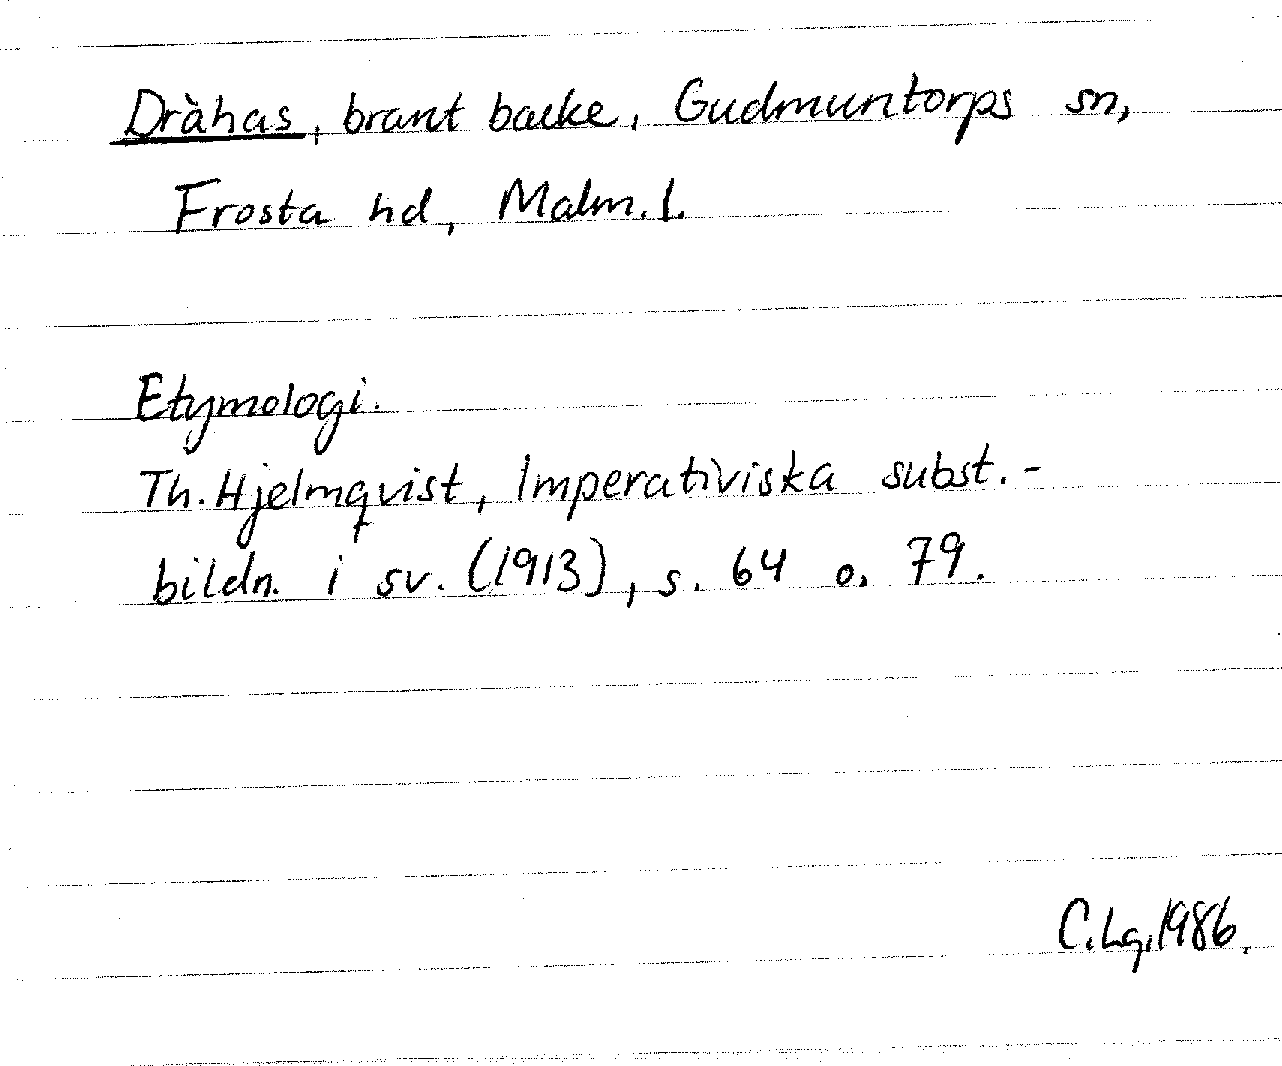 Dràhas, brant backe, Gudmuntorps sn,
Frosta hd, Malm. l.
Etymologi.
Th. Hjelmqvist, Imperativiska subst.-
bildn. i sv. (1913), s. 64 o. 79.
C. Lg, 1986.